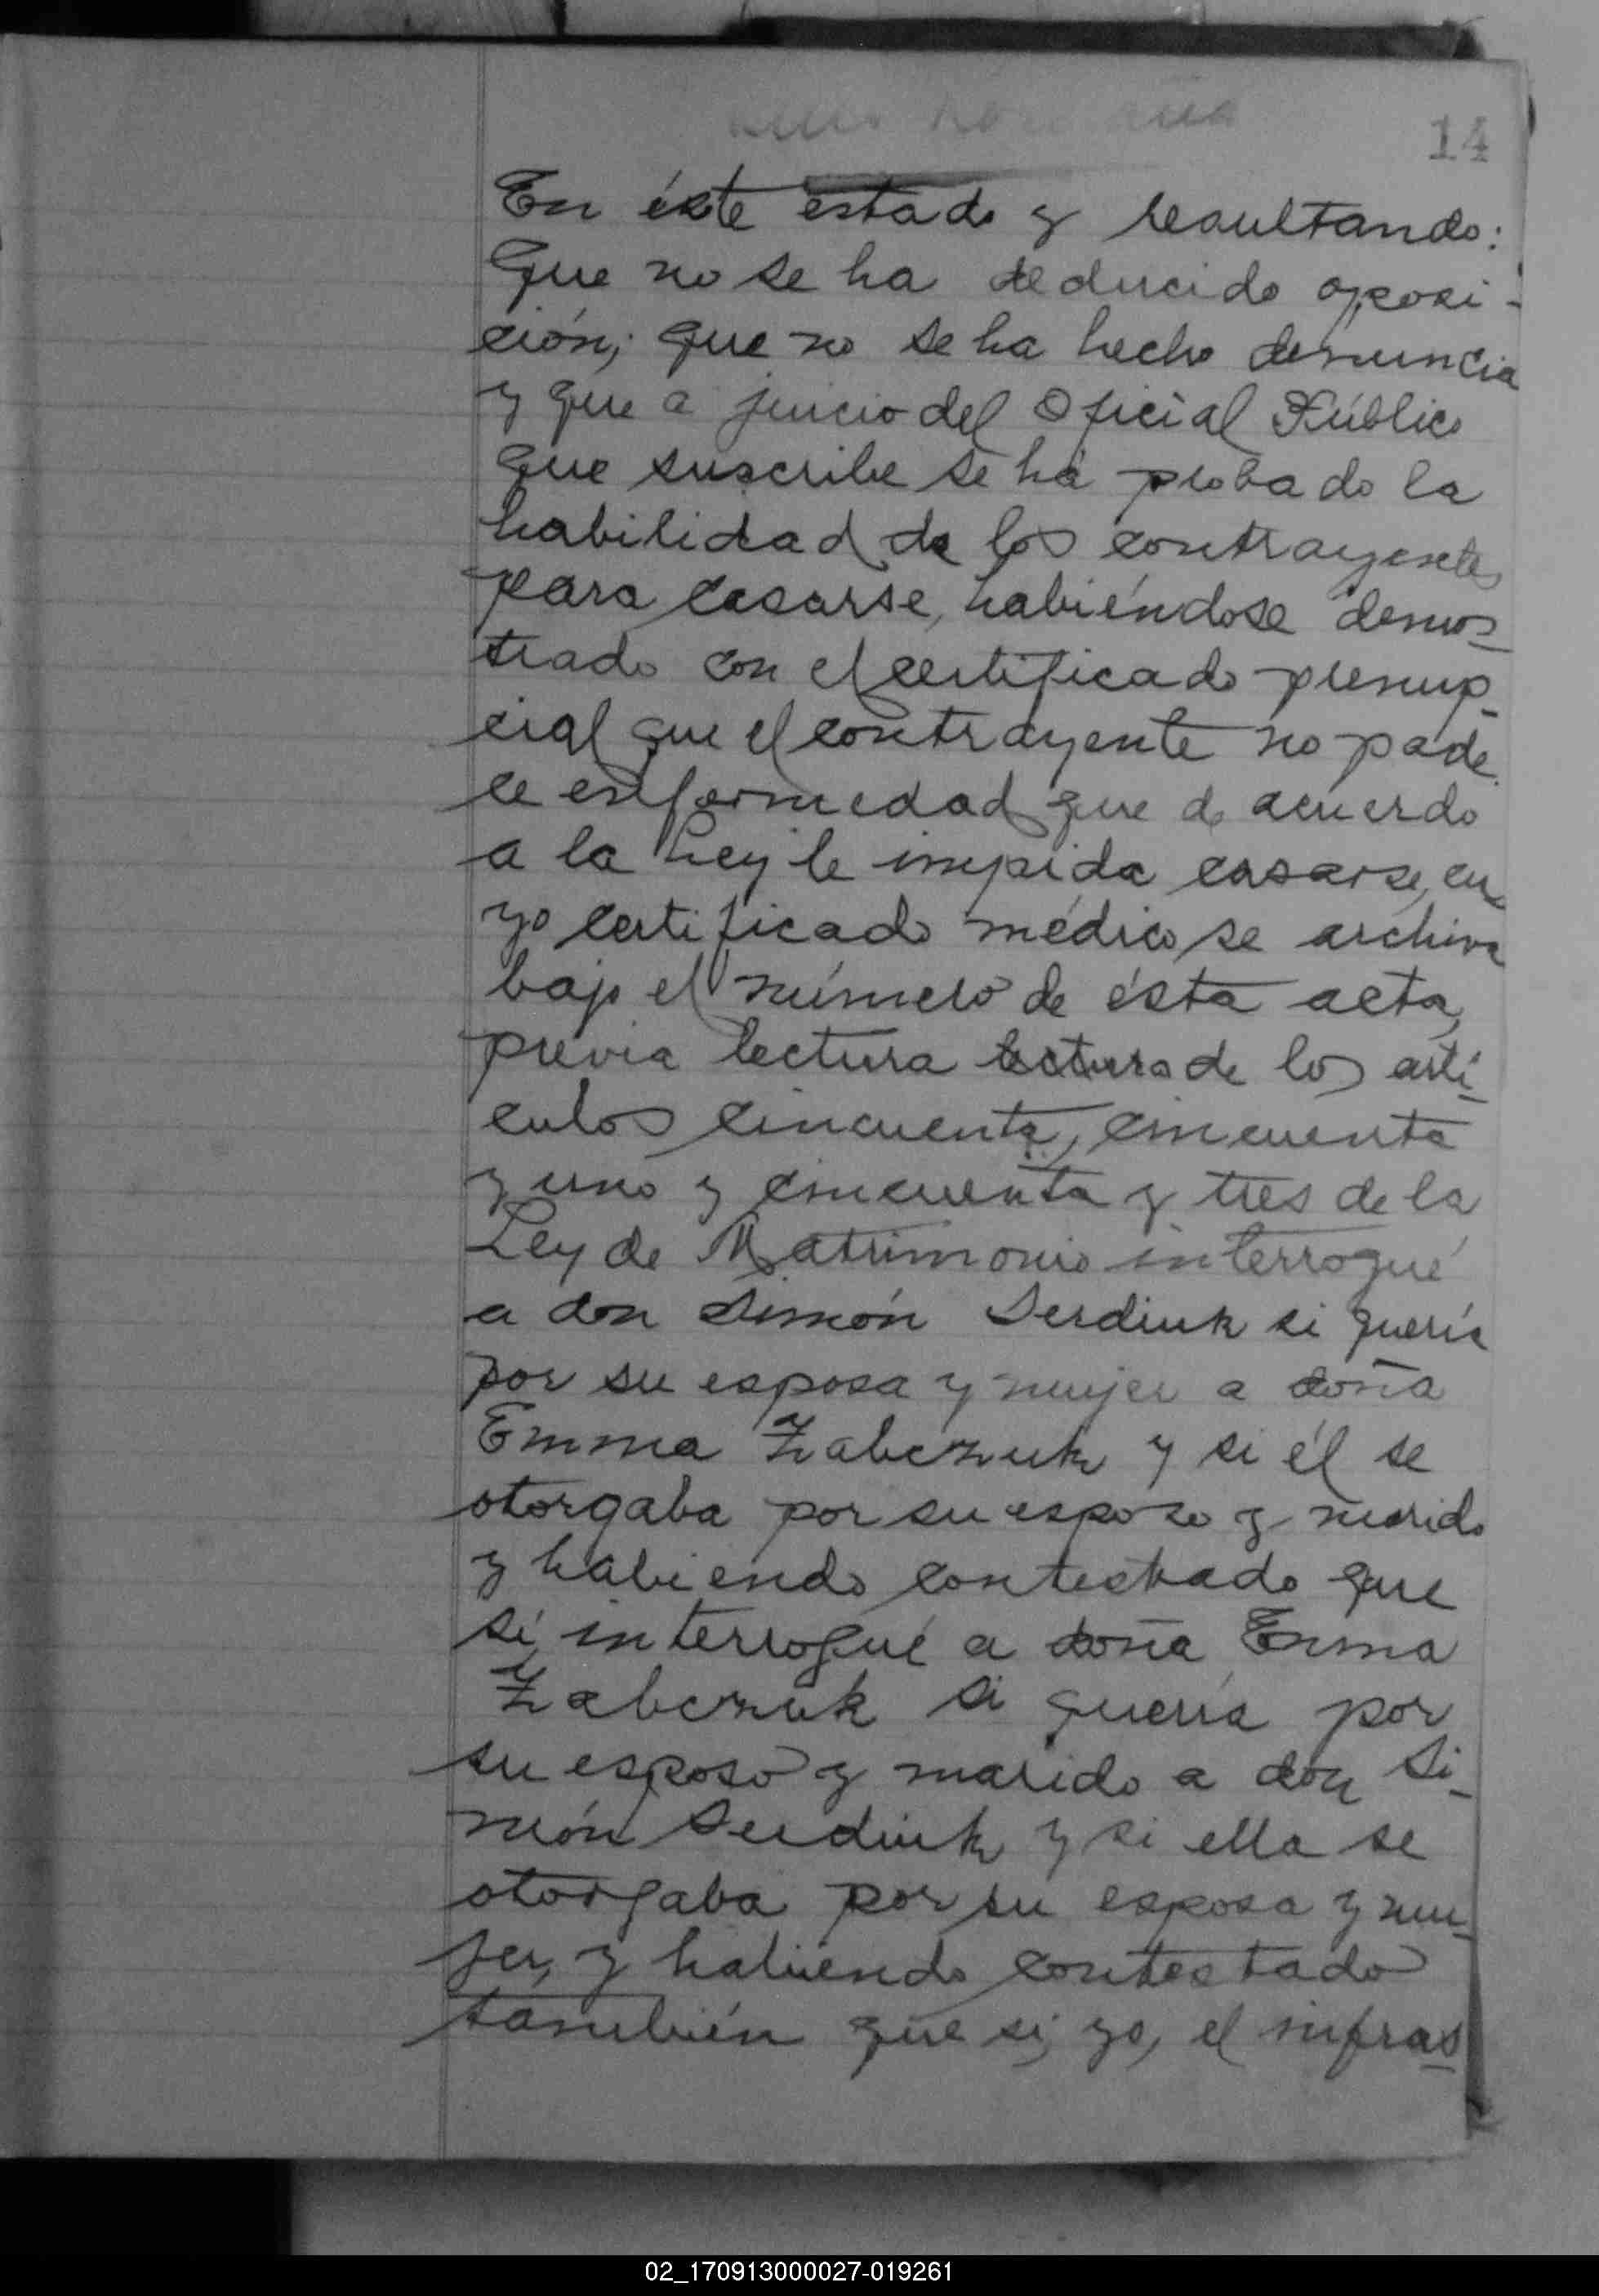 14
En éste estado y resultando:
Que no se ha deducido oposi-
ción; que no se ha hecho denuncia
y que a juicio del Oficial Público
que suscribe se há probado la
habilidad de los contrayentes
para casarse, habiéndose demos-
trado con el certificado prenup-
cial que el contrayente no pade-
ce enfermedad que de acuerdo
a la Ley le impida casarse, cu-
yo certificado médico se archiva
bajo el número de ésta acta,
previa lectura lectura de los artí-
culos cincuenta, cincuenta
y uno y cincuenta y tres de la
Ley de Matrimonio interrogué
a don Simón Serdiuk si quería
por su esposa y mujer a doña
Emma Zabczuk y si él se
otorgaba por su esposo y marido
y habiendo contestado que
sí, interrogué a doña Emma
Zabczuk si quería por
su esposo y marido a don Si-
món Serdiuk y si ella se
otorgaba por su esposa y mu-
jer, y habiendo contestado
también que sí, yo, el infras-
02_170913000027-019261